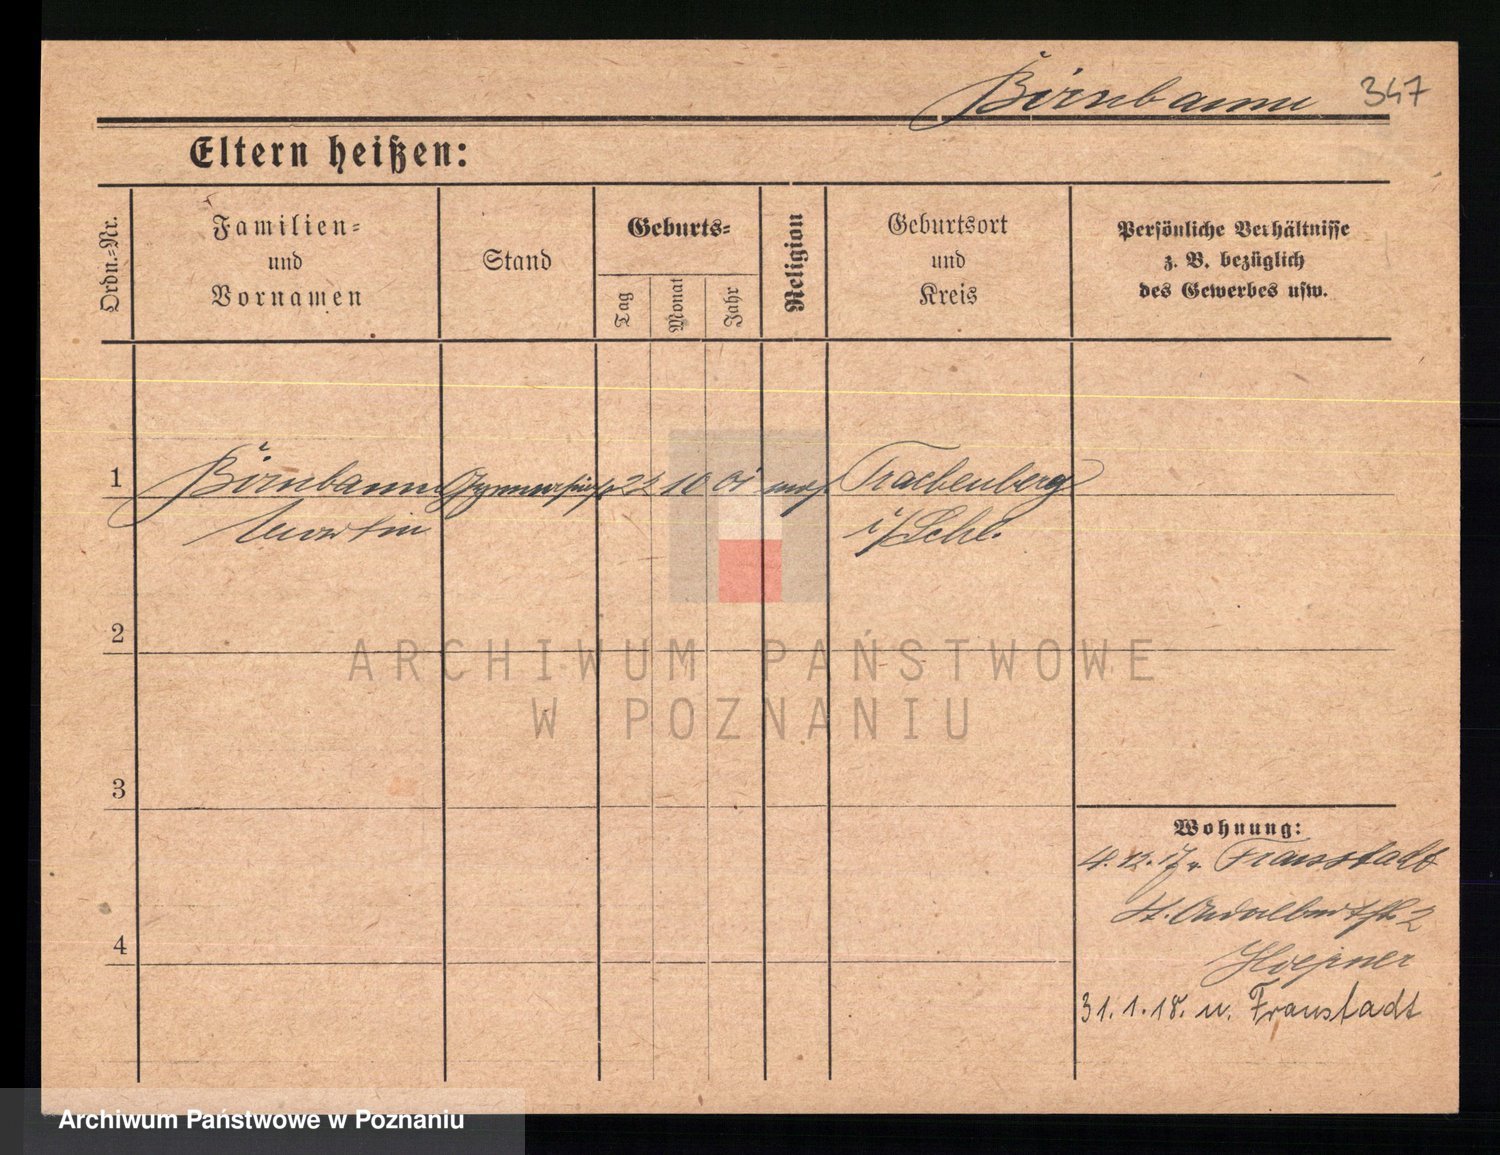 Birnbaum 347
Eltern heißen:
Ordn.-Nr.
Familien-
und
Vornamen
Stand
Geburts-
Tag
Monat
Jahr
Religion
Geburtsort
und
Kreis
Persönliche Verhältnisse
z. B. bezüglich
des Gewerbes usw.
1 Birnbaum 22 10 01 mos. Trachenberg
Martin i/Schl.
2
ARCHIWUM PAŃSTWOWE
W POZNANIU
3
Wohnung:
4. 12. 17 v. Fraustadt
St. Adalbertstr. 2
4
31. 1. 18. n. Fraustadt
Archiwum Państwowe w Poznaniu